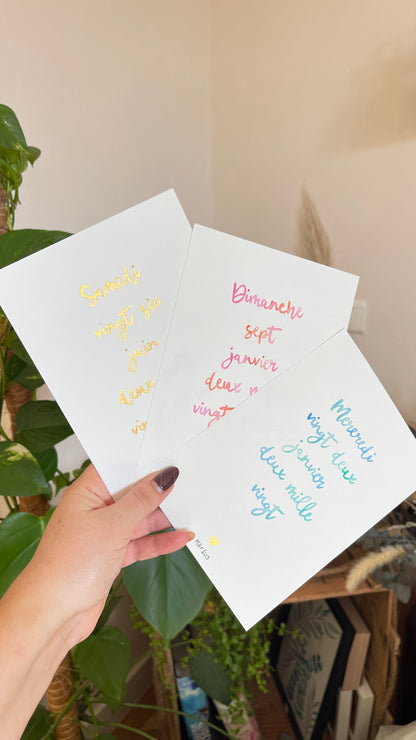 Samedi
vingt six
deux
Dimanche
sept
janvier
deux
vingt
Mercredi
vingt deux
janvier
deux mille
vingt